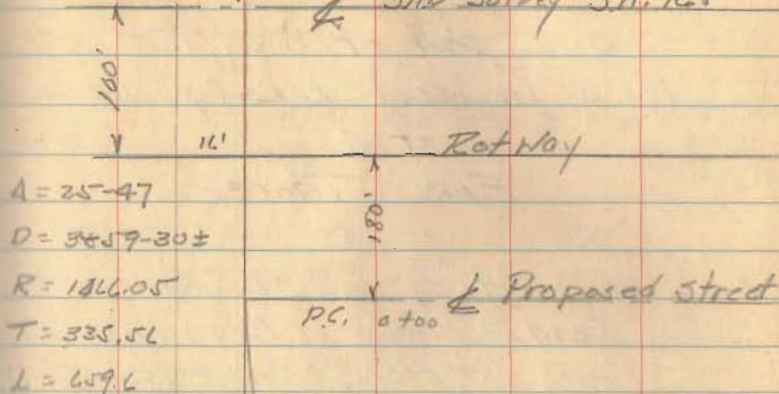 ℄ SHD Survey S.H. 16.
100'
16'
Rot Way
Δ = 25-47
D = 3°54-30±
R = 1466.05
T = 335.56
L = 659.6
180'
P.C. 0+00
℄ Proposed Street